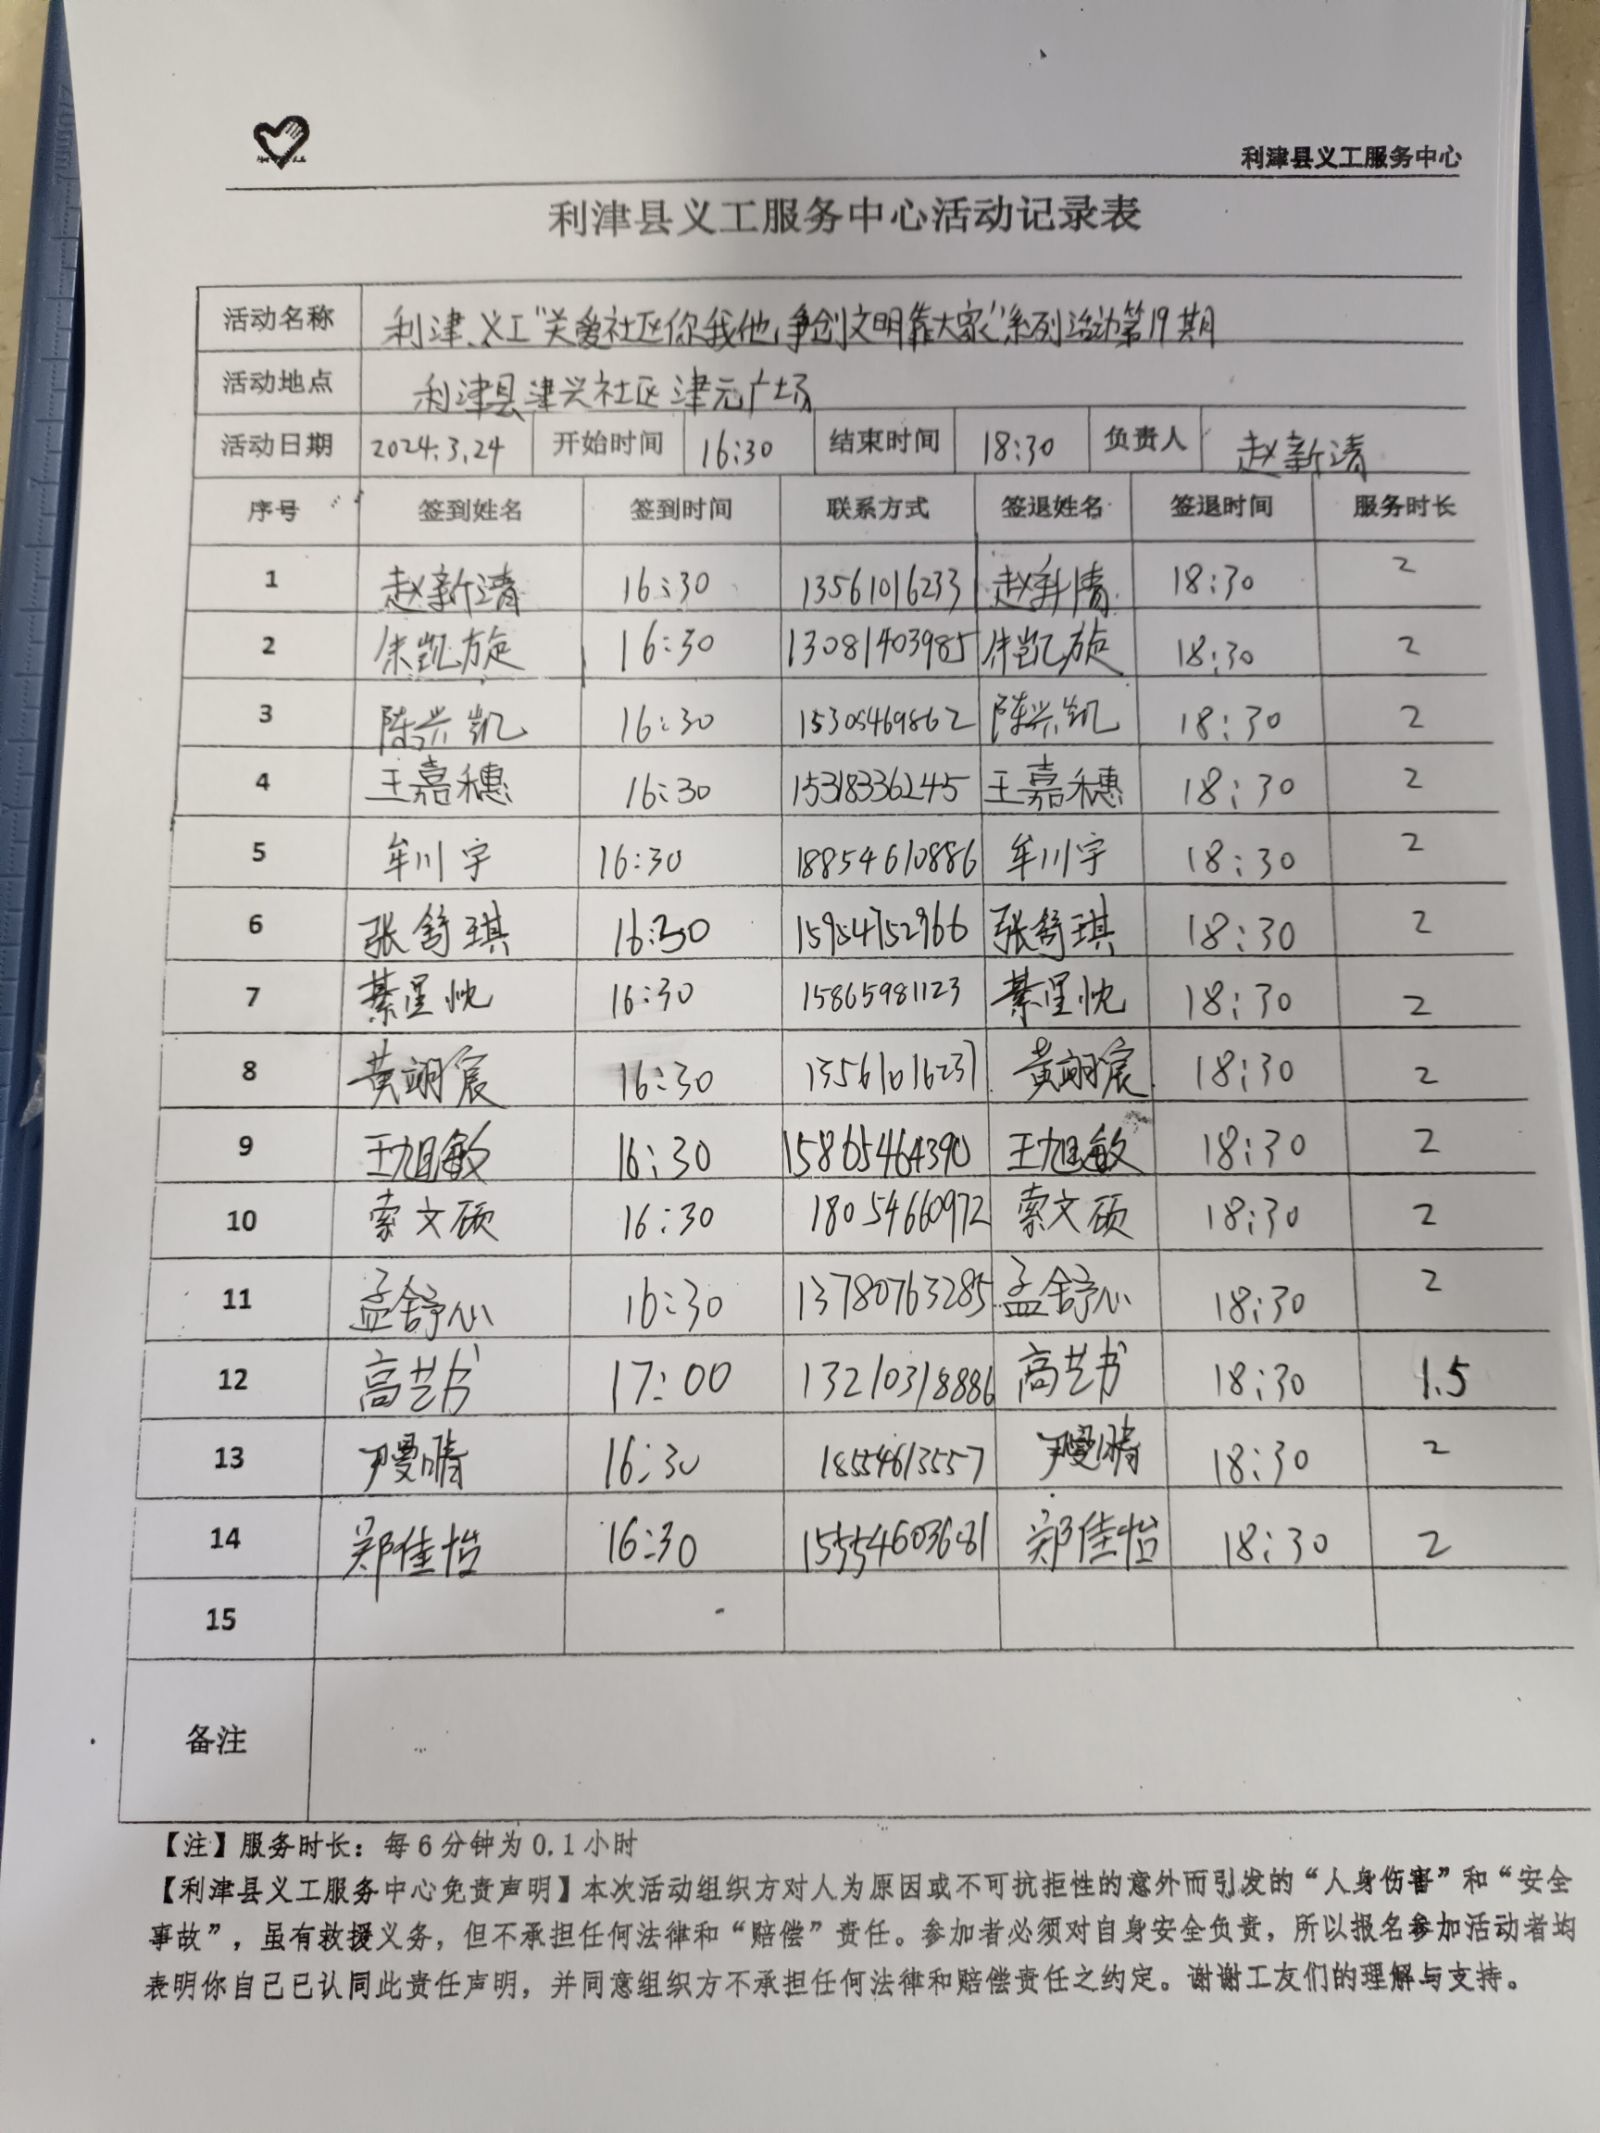 利津县义工服务中心
利津县义工服务中心活动记录表
活动名称 利津义工“关爱社区你我他,争创文明靠大家”系列活动第19期
活动地点 利津县津兴社区津元广场
活动日期 2024.3.24 开始时间 16:30 结束时间 18:30 负责人 赵新清
序号 签到姓名 签到时间 联系方式 签退姓名 签退时间 服务时长
1 赵新清 16:30 13561016233 赵新清 18:30 2
2 朱凯旋 16:30 13081403985 朱凯旋 18:30 2
3 陈兴凯 16:30 15305469862 陈兴凯 18:30 2
4 王嘉穗 16:30 15318336245 王嘉穗 18:30 2
5 牟川宇 16:30 18854610886 牟川宇 18:30 2
6 张舒琪 16:30 15954752966 张舒琪 18:30 2
7 綦星忱 16:30 15865981123 綦星忱 18:30 2
8 黄翊宸 16:30 13561016237 黄翊宸 18:30 2
9 王旭敏 16:30 15865464390 王旭敏 18:30 2
10 索文硕 16:30 18054660972 索文硕 18:30 2
11 孟舒心 16:30 13780763285 孟舒心 18:30 2
12 高艺书 17:00 13210318886 高艺书 18:30 1.5
13 尹曼晴 16:30 18554613557 尹曼晴 18:30 2
14 郑佳怡 16:30 15554603681 郑佳怡 18:30 2
15
备注
【注】服务时长：每6分钟为0.1小时
【利津县义工服务中心免责声明】本次活动组织方对人为原因或不可抗拒性的意外而引发的“人身伤害”和“安全
事故”，虽有救援义务，但不承担任何法律和“赔偿”责任。参加者必须对自身安全负责，所以报名参加活动者均
表明你自己已认同此责任声明，并同意组织方不承担任何法律和赔偿责任之约定。谢谢工友们的理解与支持。